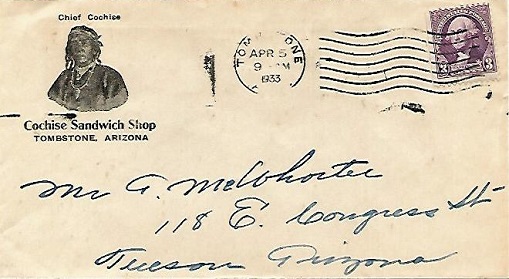 Chief Cochise
Cochise Sandwich Shop
TOMBSTONE, ARIZONA
TOMBSTONE
APR 5
9 AM
1933
3 3
Mr A. McWhorter
118 E. Congress St
Tucson Arizona